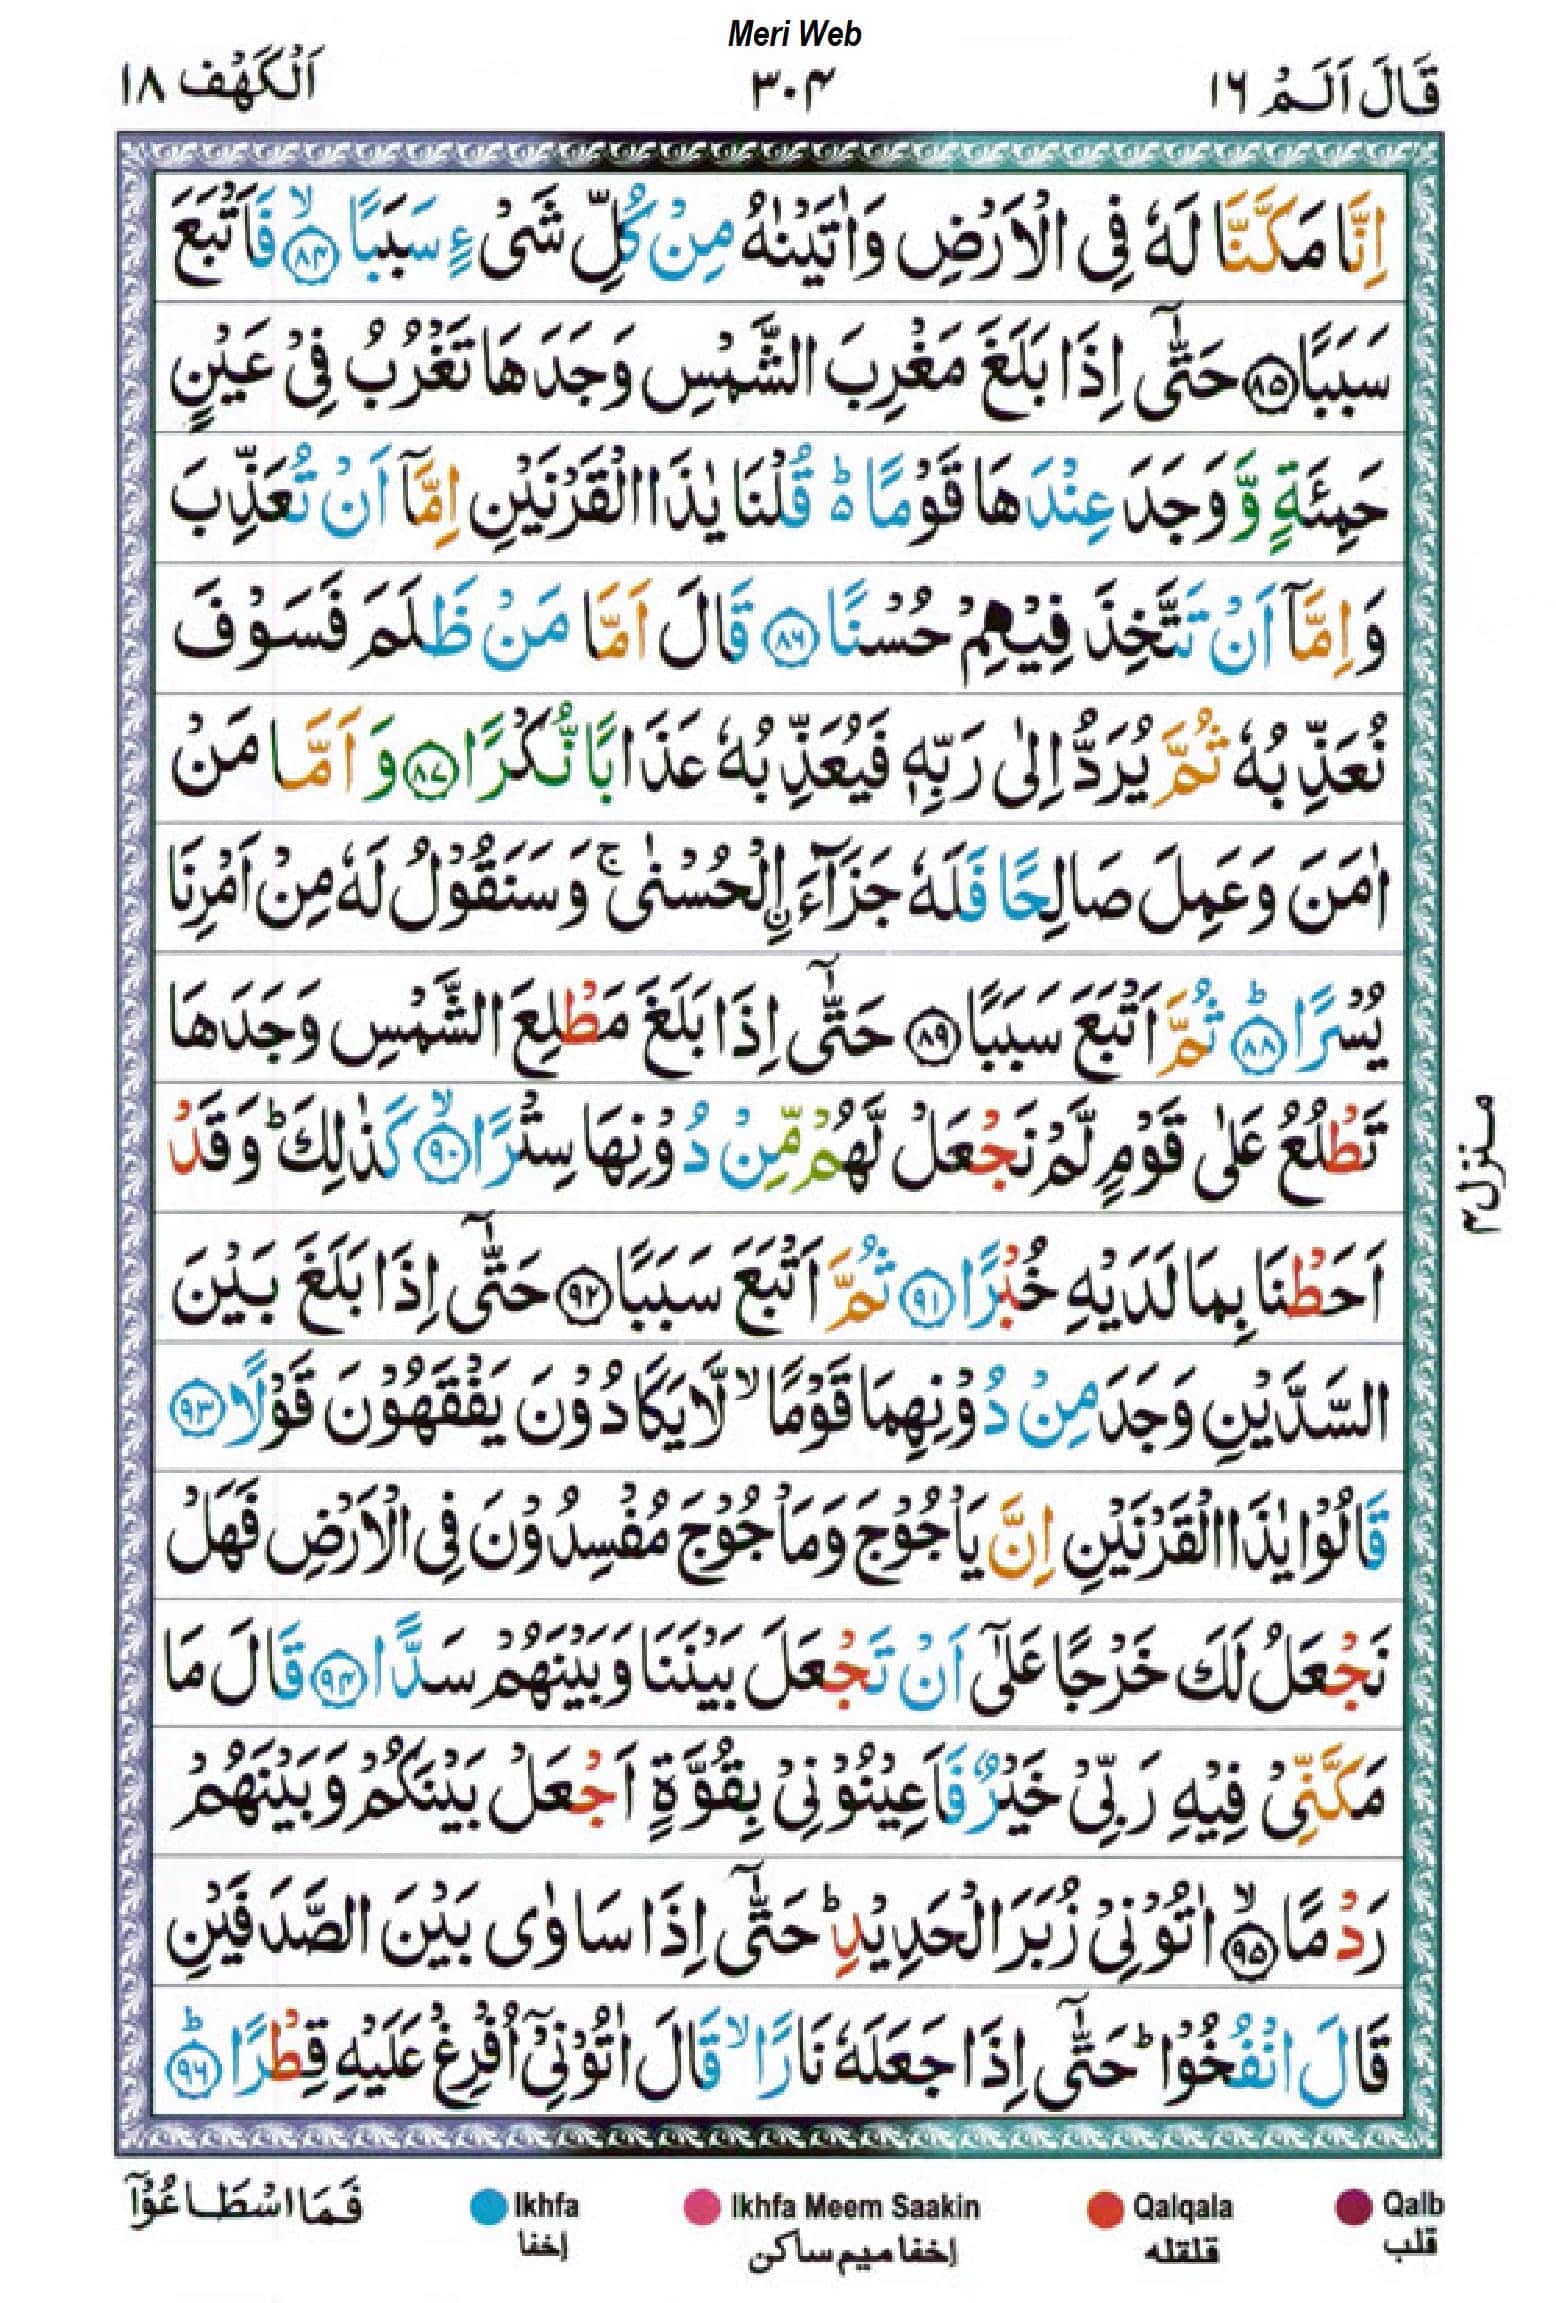 Meri Web
قَالَ اَلَمْ ١٦
٣٠٤
اَلْكَهْف ١٨
اِنَّا مَكَّنَّا لَهٗ فِی الْاَرْضِ وَاٰتَیْنٰهُ مِنْ كُلِّ شَیْءٍ سَبَبًا ۙ﴿۸۴﴾ فَاَتْبَعَ
سَبَبًا ﴿۸۵﴾ حَتّٰۤی اِذَا بَلَغَ مَغْرِبَ الشَّمْسِ وَجَدَهَا تَغْرُبُ فِیْ عَیْنٍ
حَمِئَةٍ وَّ وَجَدَ عِنْدَهَا قَوْمًا ؕ۬ قُلْنَا یٰذَا الْقَرْنَیْنِ اِمَّاۤ اَنْ تُعَذِّبَ
وَ اِمَّاۤ اَنْ تَتَّخِذَ فِیْهِمْ حُسْنًا ﴿۸۶﴾ قَالَ اَمَّا مَنْ ظَلَمَ فَسَوْفَ
نُعَذِّبُهٗ ثُمَّ یُرَدُّ اِلٰی رَبِّهٖ فَیُعَذِّبُهٗ عَذَابًا نُّكْرًا ﴿۸۷﴾ وَ اَمَّا مَنْ
اٰمَنَ وَعَمِلَ صَالِحًا فَلَهٗ جَزَآءَ ِ۟الْحُسْنٰی ۚ وَسَنَقُوْلُ لَهٗ مِنْ اَمْرِنَا
یُسْرًا ؕ﴿۸۸﴾ ثُمَّ اَتْبَعَ سَبَبًا ﴿۸۹﴾ حَتّٰۤی اِذَا بَلَغَ مَطْلِعَ الشَّمْسِ وَجَدَهَا
تَطْلُعُ عَلٰی قَوْمٍ لَّمْ نَجْعَلْ لَّهُمْ مِّنْ دُوْنِهَا سِتْرًا ۙ﴿۹۰﴾ كَذٰلِكَ ؕ وَقَدْ
اَحَطْنَا بِمَا لَدَیْهِ خُبْرًا ﴿۹۱﴾ ثُمَّ اَتْبَعَ سَبَبًا ﴿۹۲﴾ حَتّٰۤی اِذَا بَلَغَ بَیْنَ
السَّدَّیْنِ وَجَدَ مِنْ دُوْنِهِمَا قَوْمًا ۙ لَّا یَكَادُوْنَ یَفْقَهُوْنَ قَوْلًا ﴿۹۳﴾
قَالُوْا یٰذَا الْقَرْنَیْنِ اِنَّ یَاْجُوْجَ وَمَاْجُوْجَ مُفْسِدُوْنَ فِی الْاَرْضِ فَهَلْ
نَجْعَلُ لَكَ خَرْجًا عَلٰۤی اَنْ تَجْعَلَ بَیْنَنَا وَبَیْنَهُمْ سَدًّا ﴿۹۴﴾ قَالَ مَا
مَكَّنِّیْ فِیْهِ رَبِّیْ خَیْرٌ فَاَعِیْنُوْنِیْ بِقُوَّةٍ اَجْعَلْ بَیْنَكُمْ وَبَیْنَهُمْ
رَدْمًا ۙ﴿۹۵﴾ اٰتُوْنِیْ زُبَرَ الْحَدِیْدِ ؕ حَتّٰۤی اِذَا سَاوٰی بَیْنَ الصَّدَفَیْنِ
قَالَ انْفُخُوْا ؕ حَتّٰۤی اِذَا جَعَلَهٗ نَارًا ۙ قَالَ اٰتُوْنِیْۤ اُفْرِغْ عَلَیْهِ قِطْرًا ؕ﴿۹۶﴾
منزل ۴
فَمَا اسْطَاعُوْۤا
Ikhfa
اخفا
Ikhfa Meem Saakin
اخفا میم ساکن
Qalqala
قلقله
Qalb
قلب